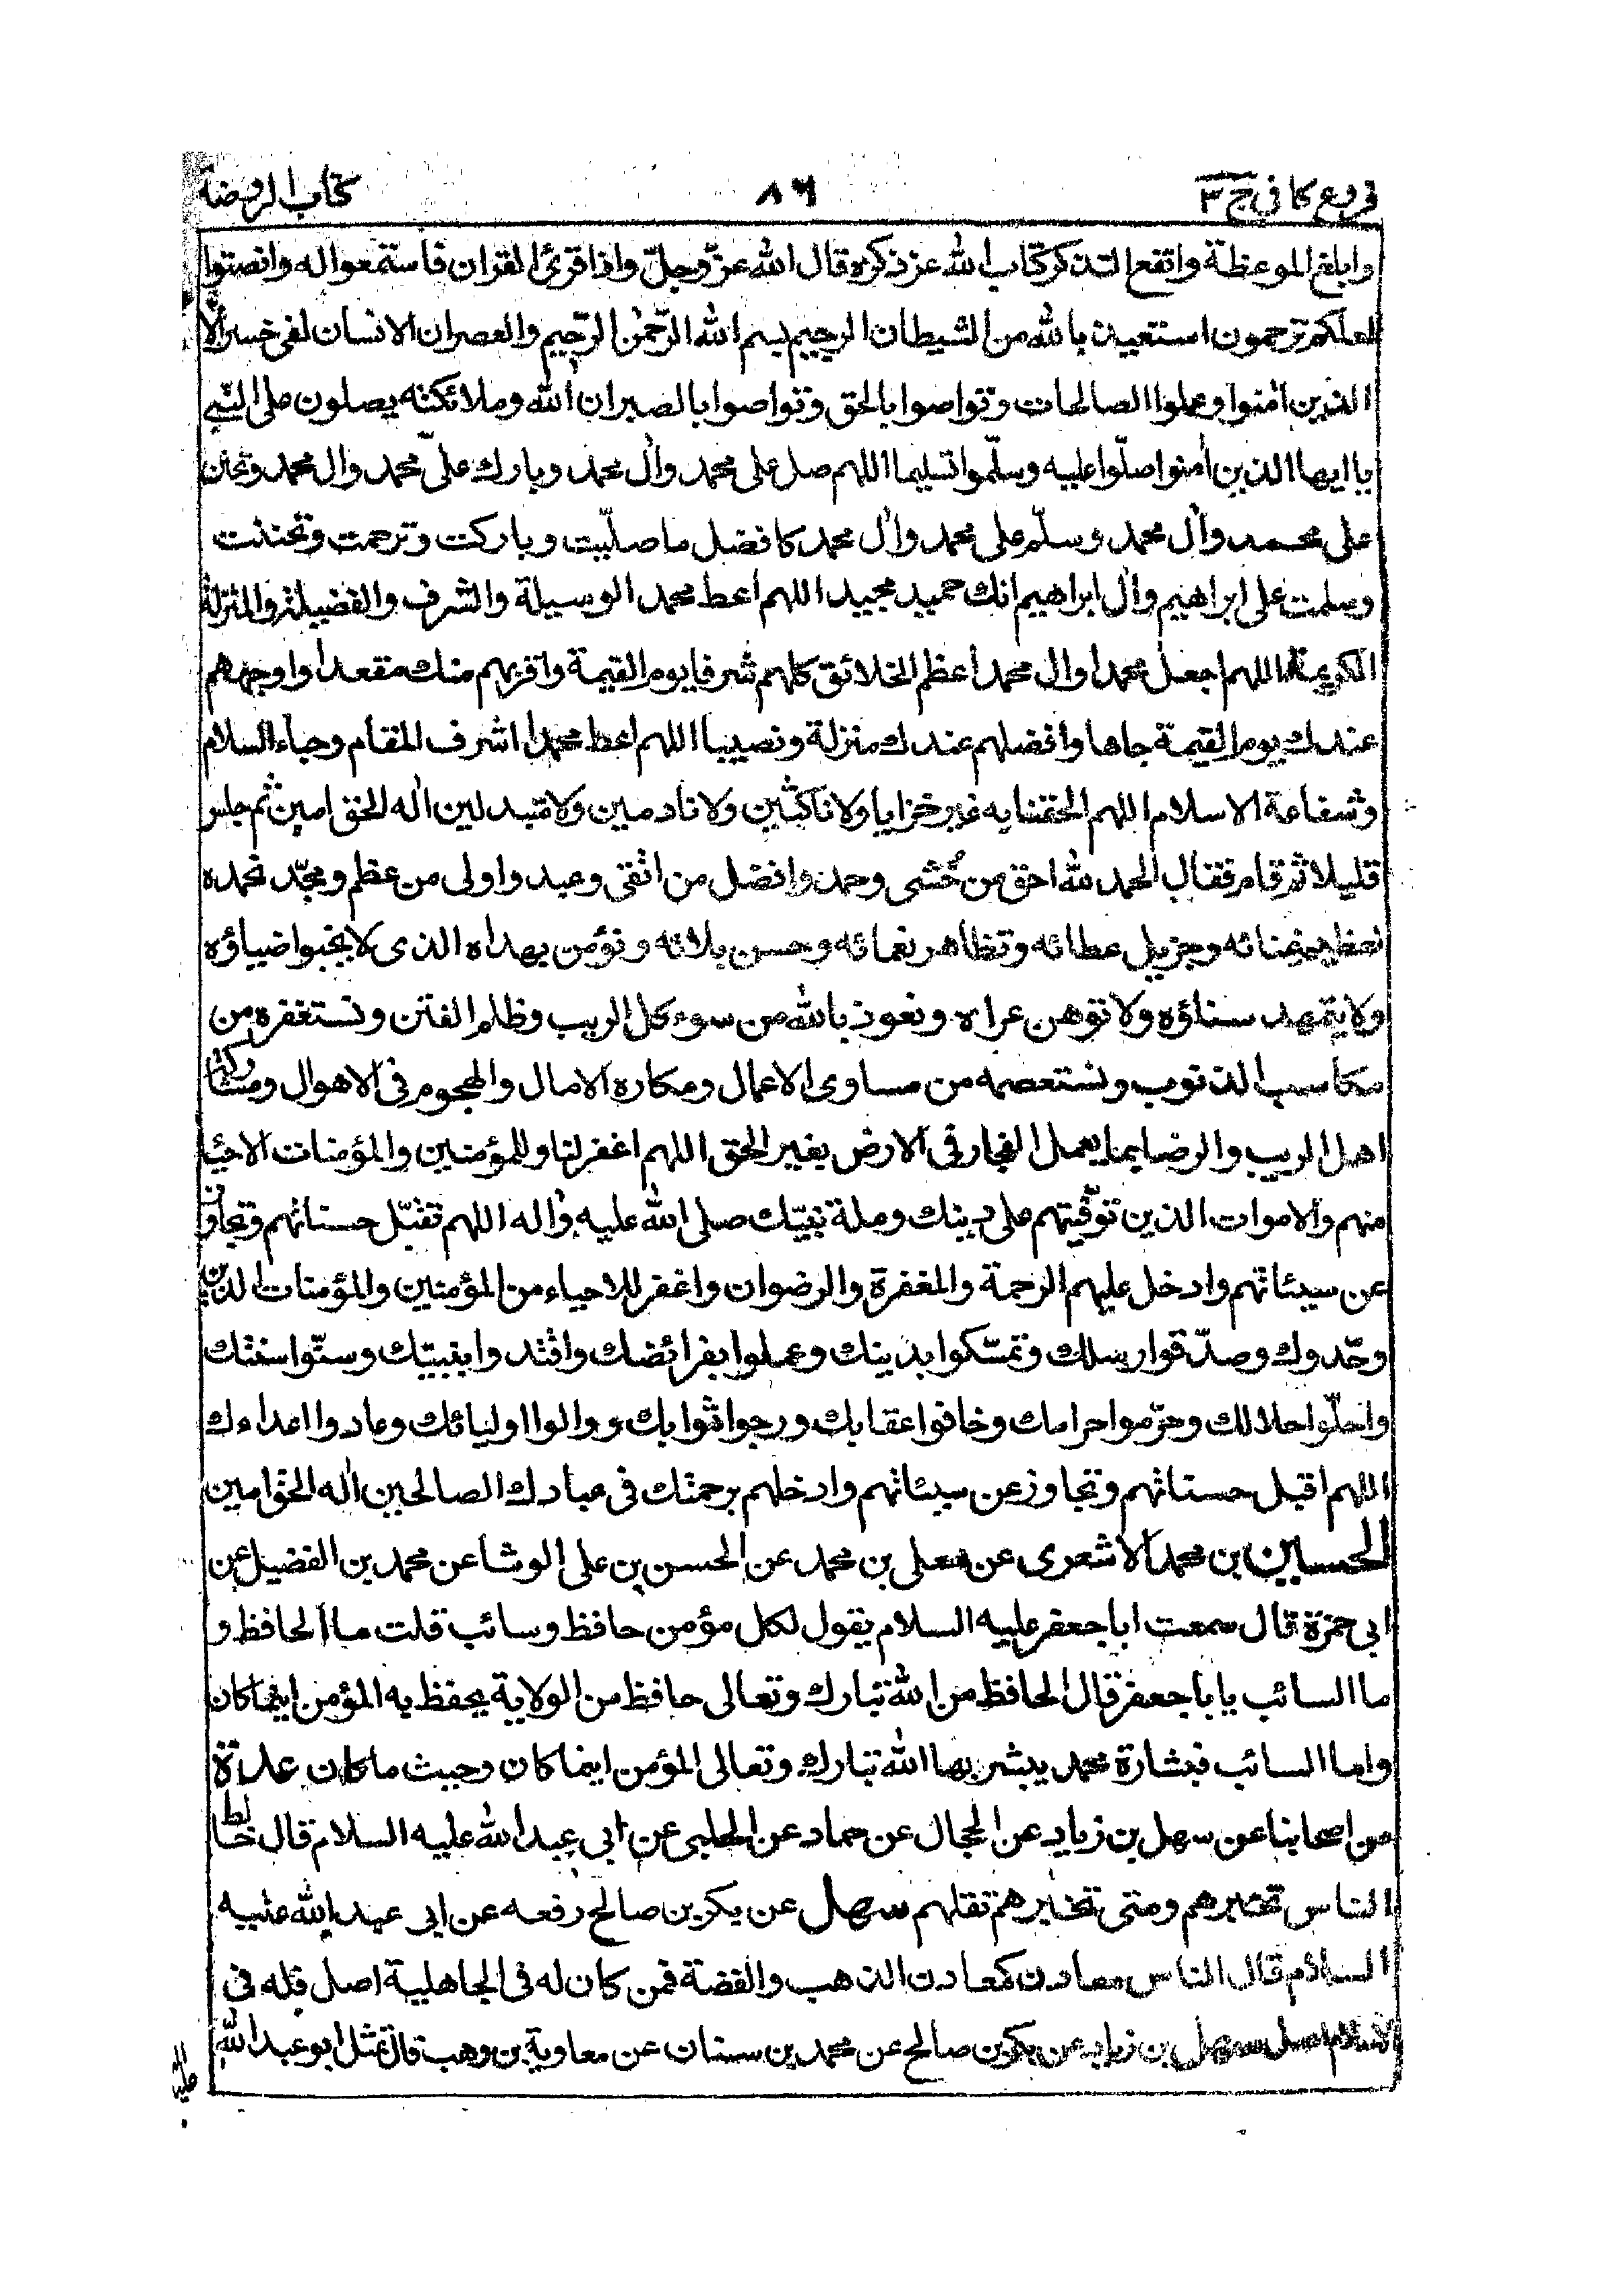 فروع كافى ج ٣
٨٦
كتاب الروضة
وابلغ الموعظة وانفع التذكر كتاب الله عز ذكره قال الله عزّ وجلّ واذا قرئ القران فاستمعوا له وانصتوا
لعلكم ترحمون استعيذ بالله من الشيطان الرجيم بسم الله الرّحمٰن الرّحيم والعصر ان الانسان لفى خسر الّا
الذين اٰمنوا وعملوا الصالحات وتواصوا بالحق وتواصوا بالصبر ان الله وملائكته يصلون على النّبي
يا ايها الذين اٰمنوا صلّوا عليه وسلّموا تسليما اللهم صل على محمد واٰل محمد وبارك على محمد وال محمد وتحنن
على محمد واٰل محمد وسلّم على محمد واٰل محمد كافضل ما صلّيت وباركت وترحمت وتحننت
وسلمت على ابراهيم واٰل ابراهيم انك حميد مجيد اللهم اعط محمد الوسيلة والشرف والفضيلة والمنزلة
الكريمة اللهم اجعل محمدا وال محمد اعظم الخلائق كلهم شرفا يوم القيمة واقربهم منك مقعدا واوجههم
عندك يوم القيمة جاها وافضلهم عندك منزلة ونصيبا اللهم اعط محمدا اشرف المقام وحباء السلام
وشفاعة الاسلام اللهم الحقنا به غير خزايا ولا ناكثين ولا نادمين ولا مبدلين اٰله الحق امين ثم جلس
قليلا ثم قام فقال الحمد لله احق من خُشى وحمد وافضل من اتقى وعبد واولى من عظم ومجّد نحمده
لعظيم غنائه وجزيل عطائه وتظاهر نعمائه وحسن بلائه ونؤمن بهداه الذى لا يخبوا ضياؤه
ولا يتمهد سناؤه ولا توهن عراه ونعوذ بالله من سوء كل الريب وظلم الفتن ونستغفره من
مكاسب الذنوب ونستعصمه من مساوى الاعمال ومكاره الامال والهجوم فى الاهوال ومشاركة
اهل الريب والرضا بما يعمل الفجار فى الارض بغير الحق اللهم اغفر لنا وللمؤمنين والمؤمنات الاحياء
منهم والاموات الذين توفّيتهم على دينك وملة نبيّك صلى الله عليه واٰله اللهم تقبّل حسناتهم وتجاوز
عن سيئاتهم وادخل عليهم الرحمة والمغفرة والرضوان واغفر للاحياء من المؤمنين والمؤمنات الذين
وحّدوك وصدّقوا رسلك وتمسّكوا بدينك وعملوا بفرائضك واقتدوا بنبيّك وسنّوا سنتك
واحلّوا حلالك وحرّموا حرامك وخافوا عقابك ورجوا ثوابك ووالوا اوليائك وعادوا اعداءك
اللهم اقبل حسناتهم وتجاوز عن سيئاتهم وادخلهم برحمتك فى عبادك الصالحين اٰله الحق امين
الحسين بن محمد الاشعرى عن معلى بن محمد عن الحسن بن على الوشا عن محمد بن الفضيل عن
ابى حمزة قال سمعت ابا جعفر عليه السلام يقول لكل مؤمن حافظ وسائب قلت ما الحافظ و
ما السائب يا با جعفر قال الحافظ من الله تبارك وتعالى حافظ من الولاية يحفظ به المؤمن اينما كان
واما السائب فبشارة محمد يبشر بها الله تبارك وتعالى المؤمن اينما كان وحيث ما كان عدة
من اصحابنا عن سهل بن زياد عن الحجال عن حماد عن الحلبى عن ابى عبد الله عليه السلام قال خالط
الناس تخبرهم ومتى تخبرهم تقلهم سهل عن بكر بن صالح رفعه عن ابى عبد الله عليه
السلام قال الناس معادن كمعادن الذهب والفضة فمن كان له فى الجاهلية اصل فله فى
الاسلام اصل سهل بن زياد عن بكر بن صالح عن محمد بن سنان عن معاوية بن وهب قال تمثل ابو عبد الله
عليه